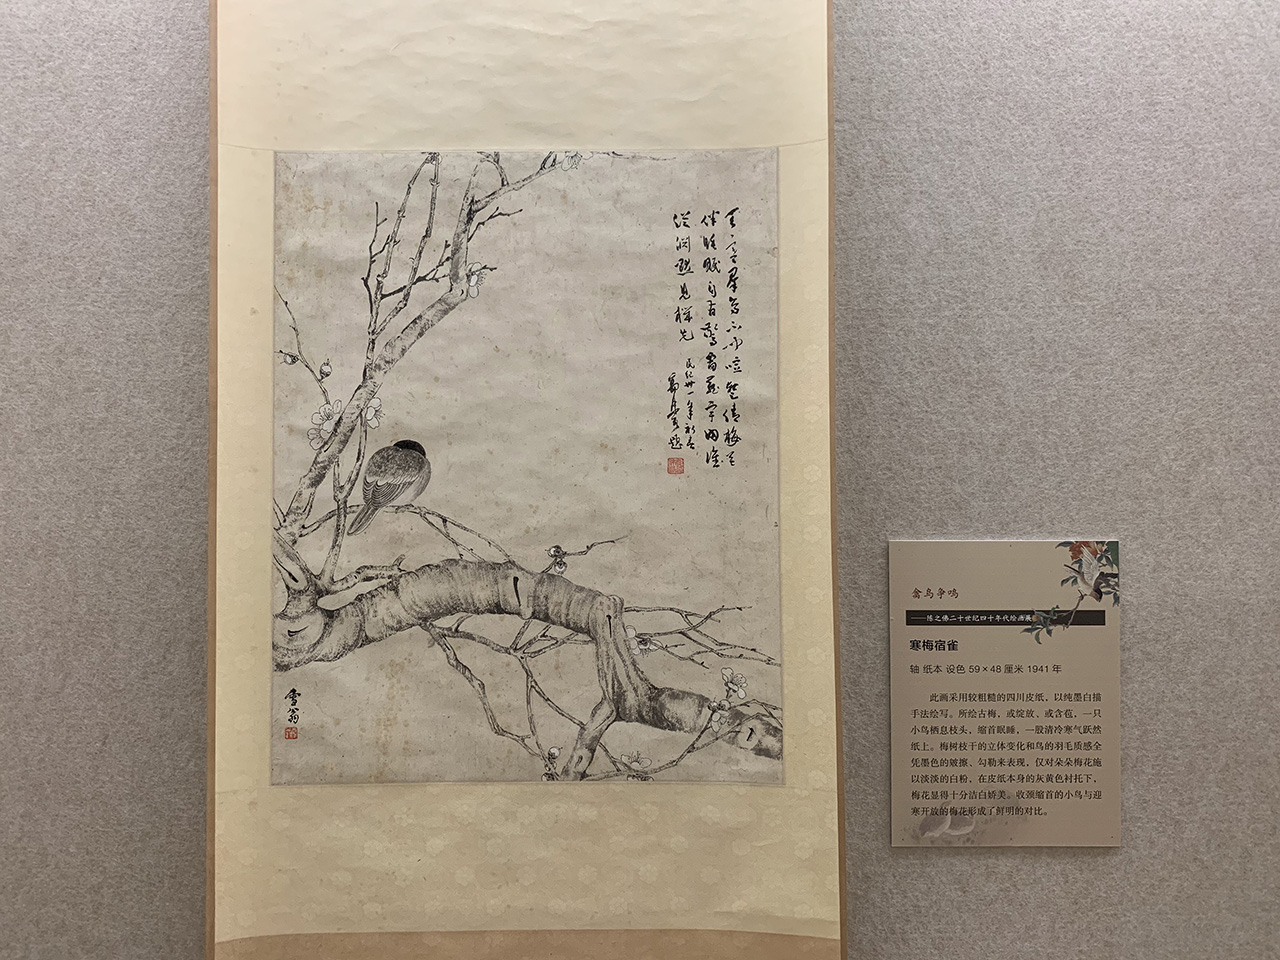 天寒羣鳥不呼喧暫倩梅花
伴睡眠自有驚
從潤
民纪卅一年初春
題
雪翁
禽鸟争鸣
——陈之佛二十世纪四十年代绘画展
寒梅宿雀
轴 纸本 设色 59×48 厘米 1941 年
此画采用较粗糙的四川皮纸，以纯墨白描
手法绘写。所绘古梅，或绽放、或含苞，一只
小鸟栖息枝头，缩首眠睡，一股清冷寒气跃然
纸上。梅树枝干的立体变化和鸟的羽毛质感全
凭墨色的皴擦、勾勒来表现，仅对朵朵梅花施
以淡淡的白粉，在皮纸本身的灰黄色衬托下，
梅花显得十分洁白娇美。收颈缩首的小鸟与迎
寒开放的梅花形成了鲜明的对比。